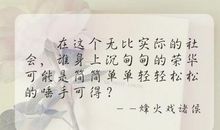 在这个无比实际的社
会，谁身上沉甸甸的荣华
可能是简简单单轻轻松松
的唾手可得？
——烽火戏诸侯